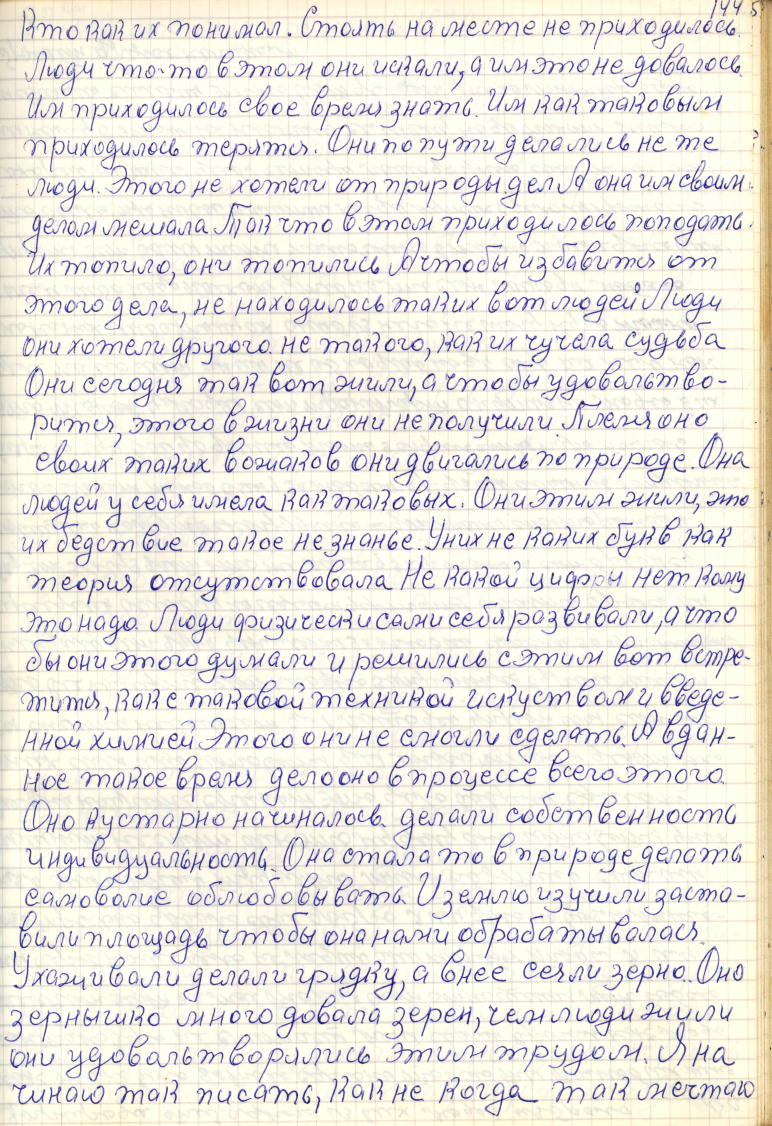 144
Кто как их понимал. Стоять на месте не приходилось.
Люди что-то в этом они искали, а им это не довалось.
Им приходилось свое время знать. Им как таковым
приходилось терятся. Они по пути делались не те
люди. Этого не хотели от природы дел А она им своим
делом мешала. Так что в этом приходилось пoподать.
Их топило, они топились А чтобы избавится от
этого дела, не находилось таких вот людей Люди
они хотели другого не такого, как их чучела судьба
Они сегодня так вот жили, а чтобы удовальтво-
рится, этого в жизни они не получили. Племя оно
своих таких вожаков они двигались по природе. Она
людей у себя имела как таковых. Они этим жили, это
их бедствие такое не знанье. У них не каких букв как
теория отсутствовала Не какой цифры нет кому
это надо. Люди физически сами себя развивали, а что
бы они этого думали и решились с этим вот встре-
тится, как с таковой техникой искуством и введе-
нной химией Этого они не смогли сделать. А в дан-
ное такое время дело оно в процессе всего этого.
Оно кустарно начиналось. делали собственность
индивидуальность. Она стала то в природе делать
самоволие облюбовывать. И землю изучили заста-
вили площадь чтобы она нами обрабатывалася.
Ухаживали делали грядку, а в нее сеяли зерно. Оно
зернышко много довала зерен, чем люди жили
они удовальтворялись этим трудом. Я на
чинаю так писать, как не когда так мечтаю